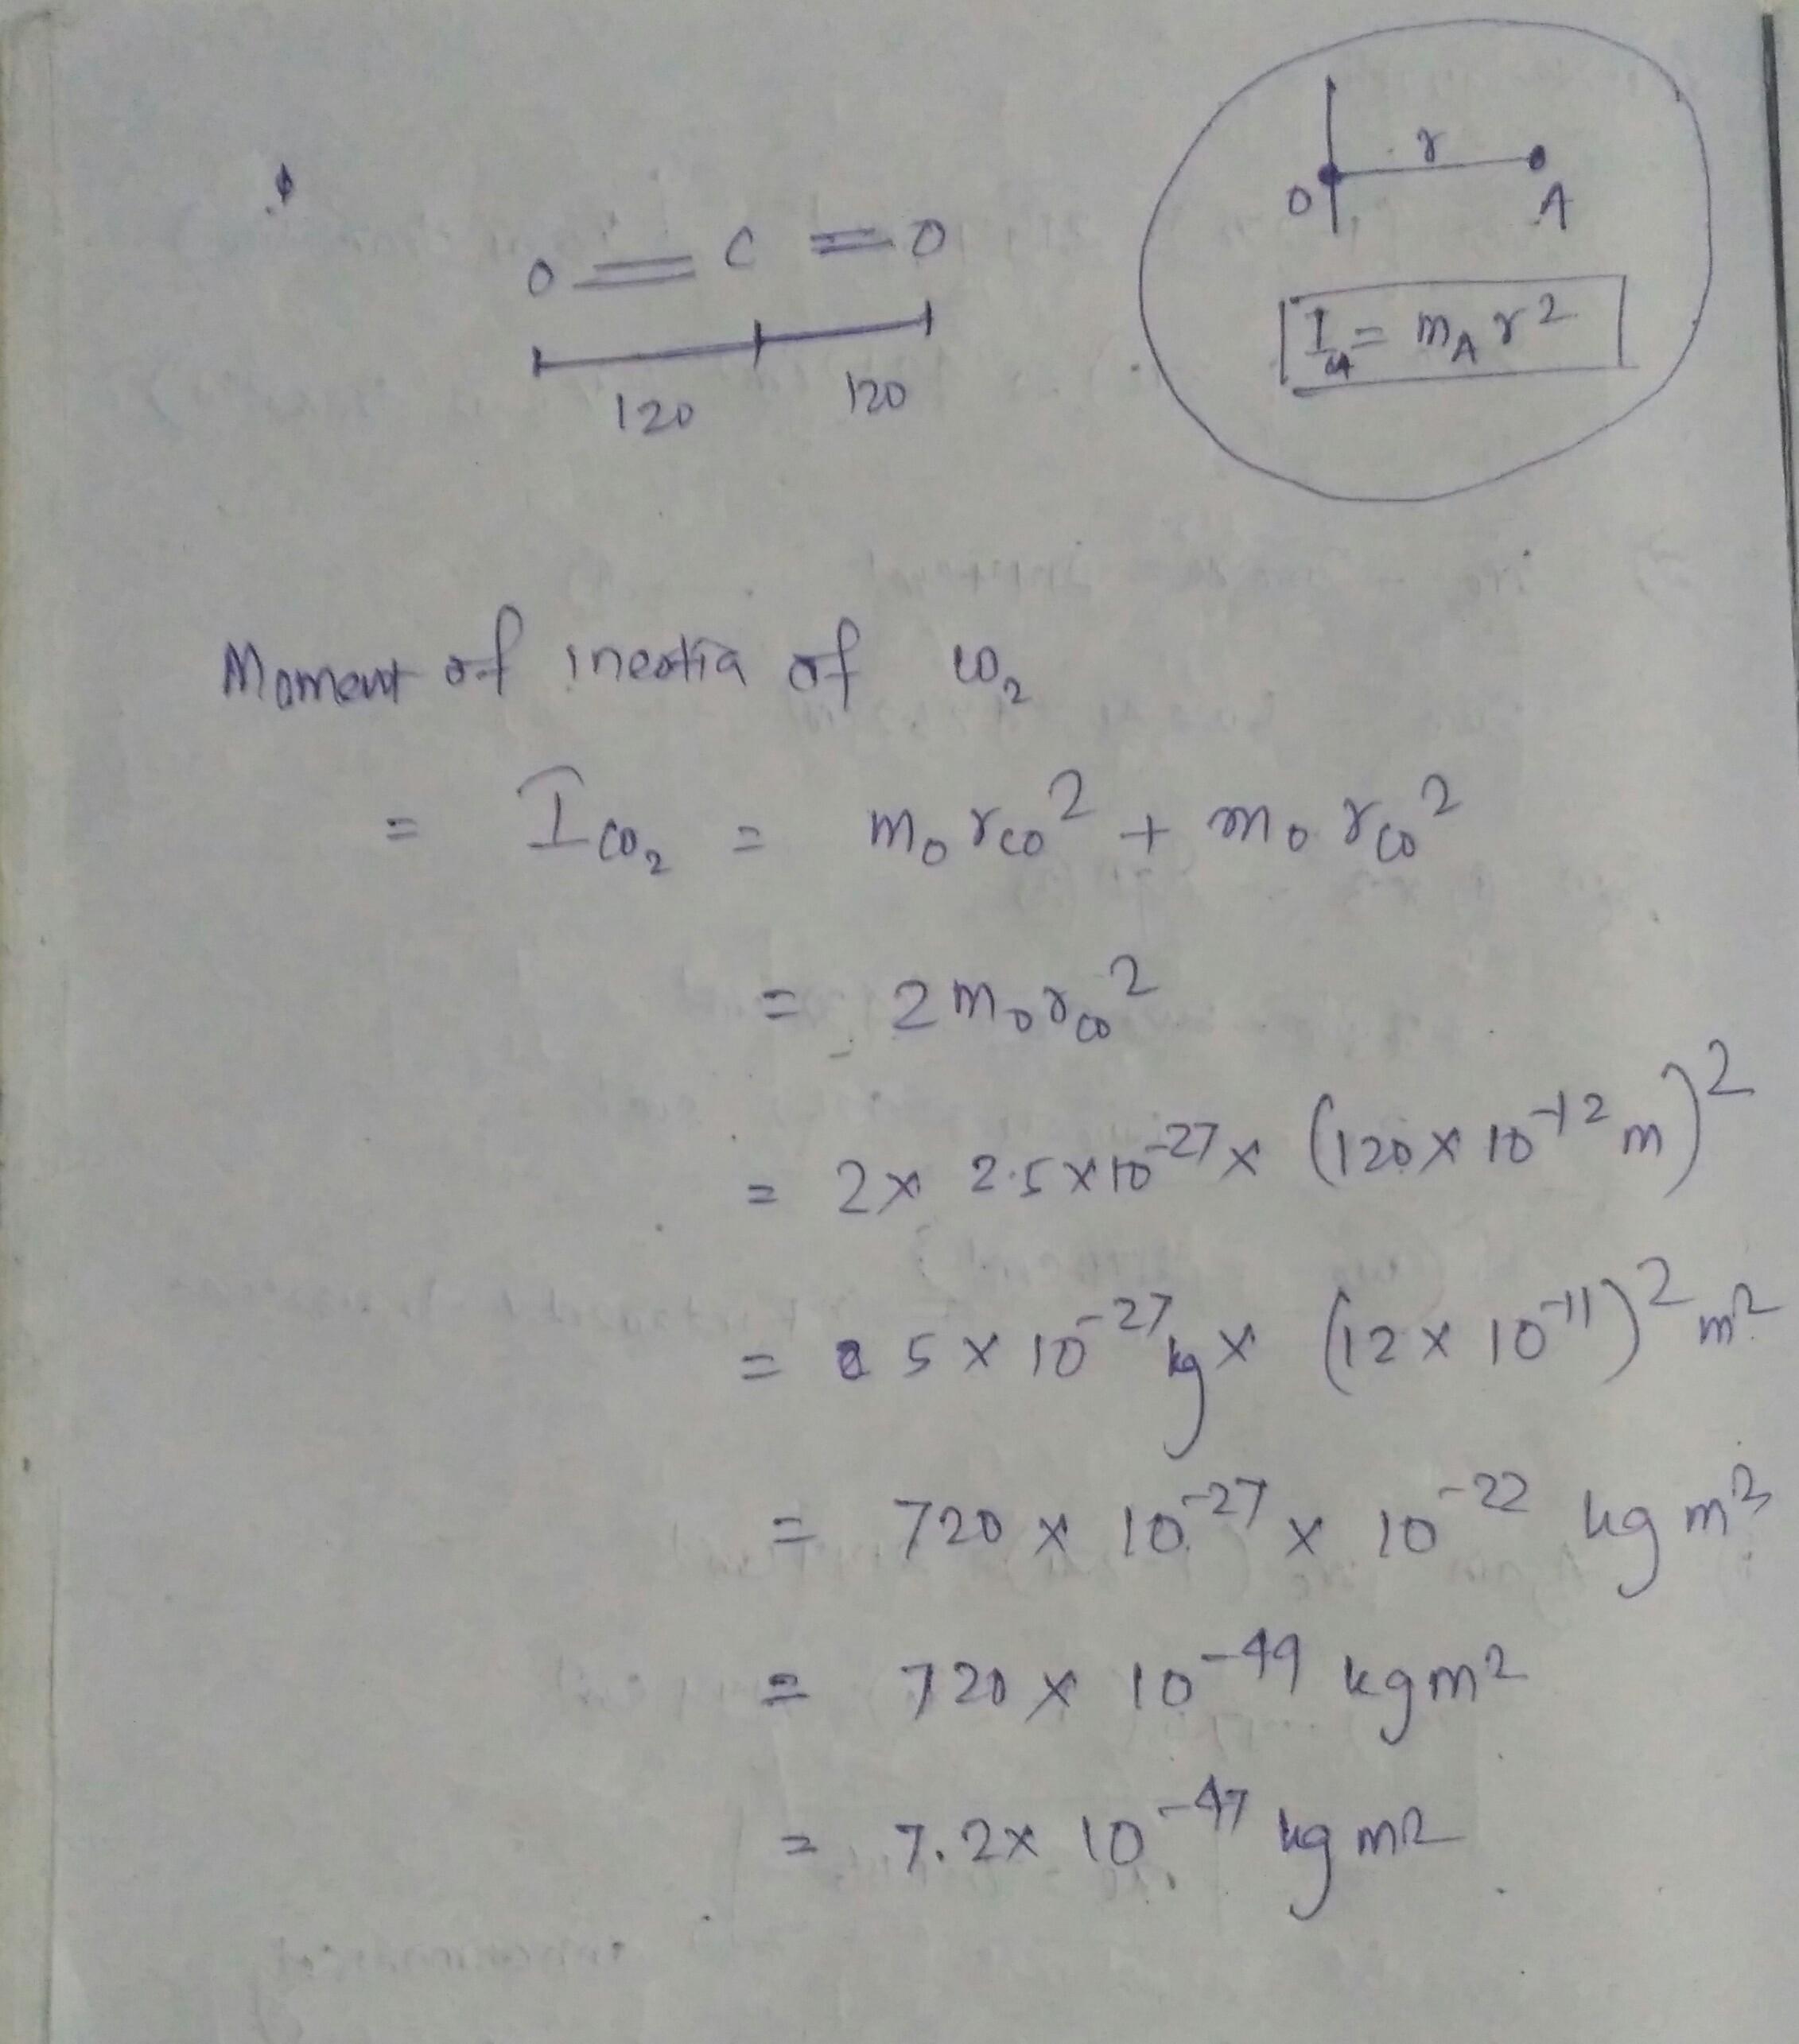 O = C = O
120 120
r
O A
I_OA = m_A r²
Moment of inertia of CO₂
= I_CO₂ = m_O r_CO² + m_O r_CO²
= 2 m_O r_CO²
= 2 × 2.5 × 10⁻²⁷ × (120 × 10⁻¹² m)²
= 5 × 10⁻²⁷ kg × (12 × 10⁻¹¹)² m²
= 720 × 10⁻²⁷ × 10⁻²² kg m²
= 720 × 10⁻⁴⁹ kg m²
= 7.2 × 10⁻⁴⁷ kg m²